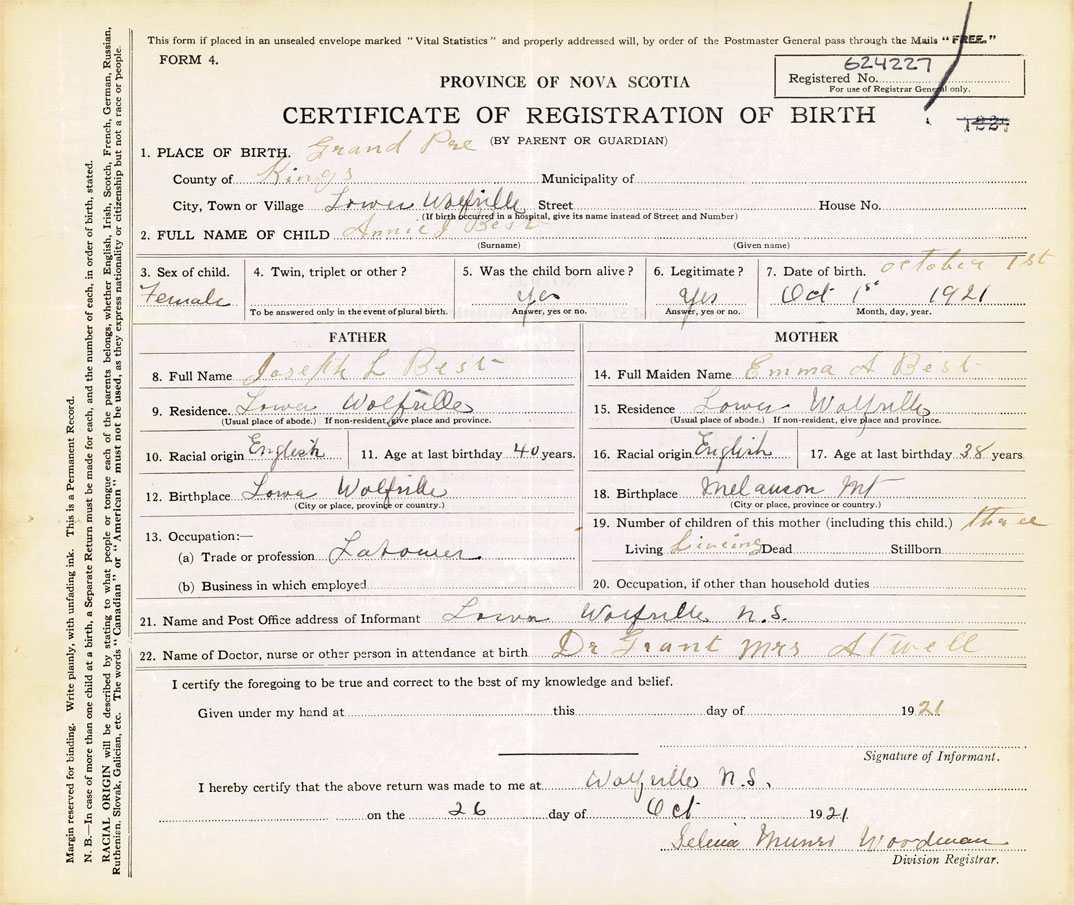 This form if placed in an unsealed envelope marked "Vital Statistics" and properly addressed will, by order of the Postmaster General pass through the Mails "FREE."
FORM 4.
624227
Registered No.
For use of Registrar General only.
PROVINCE OF NOVA SCOTIA
CERTIFICATE OF REGISTRATION OF BIRTH
(BY PARENT OR GUARDIAN)
1. PLACE OF BIRTH. Grand Pre
County of Kings Municipality of
City, Town or Village Lower Wolfville Street House No.
(If birth occurred in a hospital, give its name instead of Street and Number)
2. FULL NAME OF CHILD Annie J Best
(Surname) (Given name)
3. Sex of child. 4. Twin, triplet or other? 5. Was the child born alive? 6. Legitimate? 7. Date of birth. october 1st
Female yes Yes Oct 1st 1921
To be answered only in the event of plural birth. Answer, yes or no. Answer, yes or no. Month, day, year.
FATHER
8. Full Name Joseph L Best
9. Residence. Lower Wolfville
(Usual place of abode.) If non-resident, give place and province.
10. Racial origin English 11. Age at last birthday 40 years.
12. Birthplace Lower Wolfville
(City or place, province or country.)
13. Occupation:—
(a) Trade or profession Labourer
(b) Business in which employed
MOTHER
14. Full Maiden Name Emma A Best
15. Residence Lower Wolfville
(Usual place of abode.) If non-resident, give place and province.
16. Racial origin English 17. Age at last birthday 38 years.
18. Birthplace Melanson Mt
(City or place, province or country.)
19. Number of children of this mother (including this child.) three
Living Liveing Dead Stillborn
20. Occupation, if other than household duties
21. Name and Post Office address of Informant Lower Wolfville N.S.
22. Name of Doctor, nurse or other person in attendance at birth Dr Grant Mrs Atwell
I certify the foregoing to be true and correct to the best of my knowledge and belief.
Given under my hand at this day of 1921
Signature of Informant.
I hereby certify that the above return was made to me at Wolfville N.S.
on the 26 day of Oct 1921
Selena Munro Woodman
Division Registrar.
Margin reserved for binding. Write plainly, with unfading ink. This is a Permanent Record.
N. B.—In case of more than one child at a birth, a Separate Return must be made for each, and the number of each, in order of birth, stated.
RACIAL ORIGIN will be described by stating to what people or tongue each of the parents belongs, whether English, Irish, Scotch, French, German, Russian,
Ruthenian, Slovak, Galician, etc. The words "Canadian" or "American" must not be used, as they express nationality or citizenship but not a race or people.